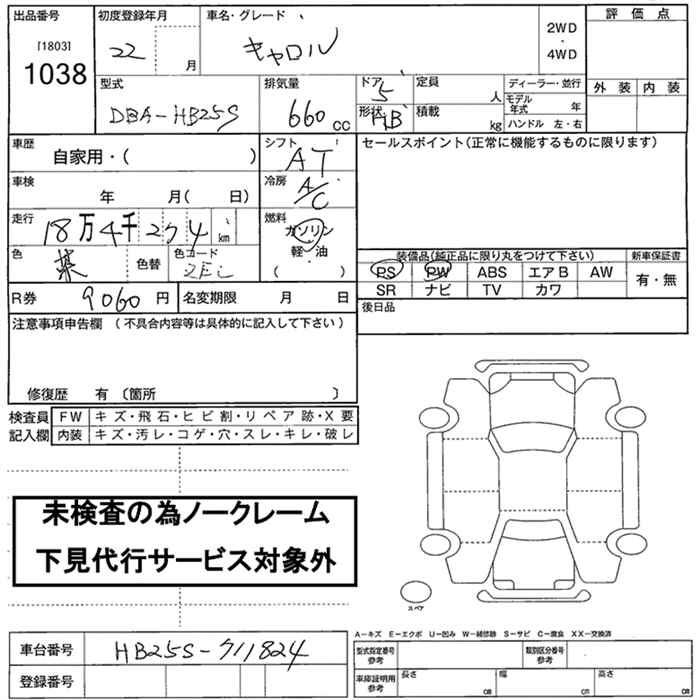 出品番号 初度登録年月 車名・グレード
[1803] 1038
22 月 キャロル 2WD・4WD
評価点
外装 内装
型式 DBA-HB25S
排気量 660 cc
ドア 5 形状 HB
定員 人 積載 kg
ディーラー・並行
モデル年式 年
ハンドル 左・右
車歴 自家用・( )
車検 年 月( 日)
走行 18万4千274 km
色 色替 色コード
シフト AT
冷房 A/C
燃料 ガソリン 軽・油 ( )
セールスポイント(正常に機能するものに限ります)
装備品(純正品に限り丸をつけて下さい) 新車保証書
PS PW ABS エアB AW 有・無
SR ナビ TV カワ
後日品
R券 9060円 名変期限 月 日
注意事項申告欄 (不具合内容等は具体的に記入して下さい)
修復歴 有 〔箇所 〕
検査員 FW キズ・飛石・ヒビ割・リペア跡・X要
記入欄 内装 キズ・汚レ・コゲ・穴・スレ・キレ・破レ
未検査の為ノークレーム
下見代行サービス対象外
スペア
A-キズ E-エクボ U-凹み W-補修跡 S-サビ C-腐食 XX-交換済
車台番号 HB25S-711824
登録番号
型式指定番号 参考 類別区分番号 参考
車庫証明用 参考 長さ cm 幅 cm 高さ cm